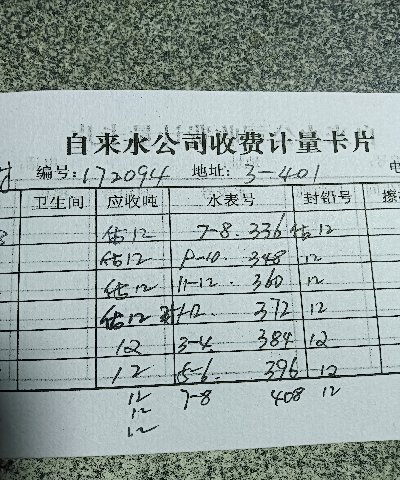 自来水公司收费计量卡片
编号:172094 地址: 3-401 电
卫生间 应收吨 水表号 封铅号 擦
估12 7-8. 336 估12
估12 9-10. 348 12
估12 11-12 360 12
估12 1-2 372 12
12 3-4 384 12
12 5-6. 396 12
12 7-8 408 12
12
12